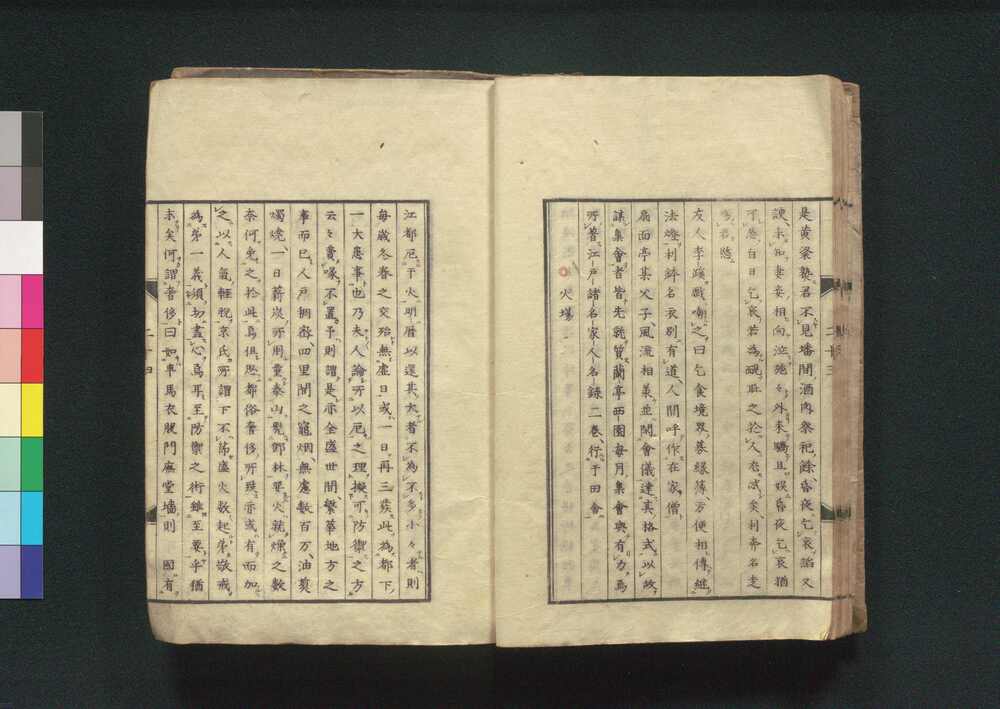 是黄粱塾君不見墦間酒肉祭祀餘昏夜乞哀諂又
諛未知妻妾相向泣施々外来驕且娯昏夜乞哀猶
可愍白日乞哀若為硯恥之於人大哉矣利奔名走
友人李蹊戯嘲之曰乞食境界募縁簿方便相傳継
法燈利鉢名衣別有道人間呼作在家僧
扇面亭集犬子風流相兼並開會儀達其格式以故
謀集會者皆先就質蘭亭西園毎月集會與有力焉
所著江戸諸名家人名録二巻行于田舎
火場
江都厄于火明暦以還其大者不為不多小々者則
毎歳冬春之交殆無虚日或一日再三災此為都下
一大患事也乃夫人論所以厄之之理擬可防禦之方
云々賣喙不置予則謂是亦全盛世間繁華地方之
事而已人戸稠密四里間之竈烟無慮數百万油煑
燭燒一日薪炭所用童泰山髠鄧林要火就燥之數
奈何免之於此為俱思都俗奢侈所致亦或有而加
之以人氣輕祝京氏所謂下不節盛火數起弟敬戒
為第一義須切盡心焉耳至防禦之術雖至要乎猶
末矣何謂奢侈曰如車馬衣服門廡堂墻則 國有
二十三
二十四